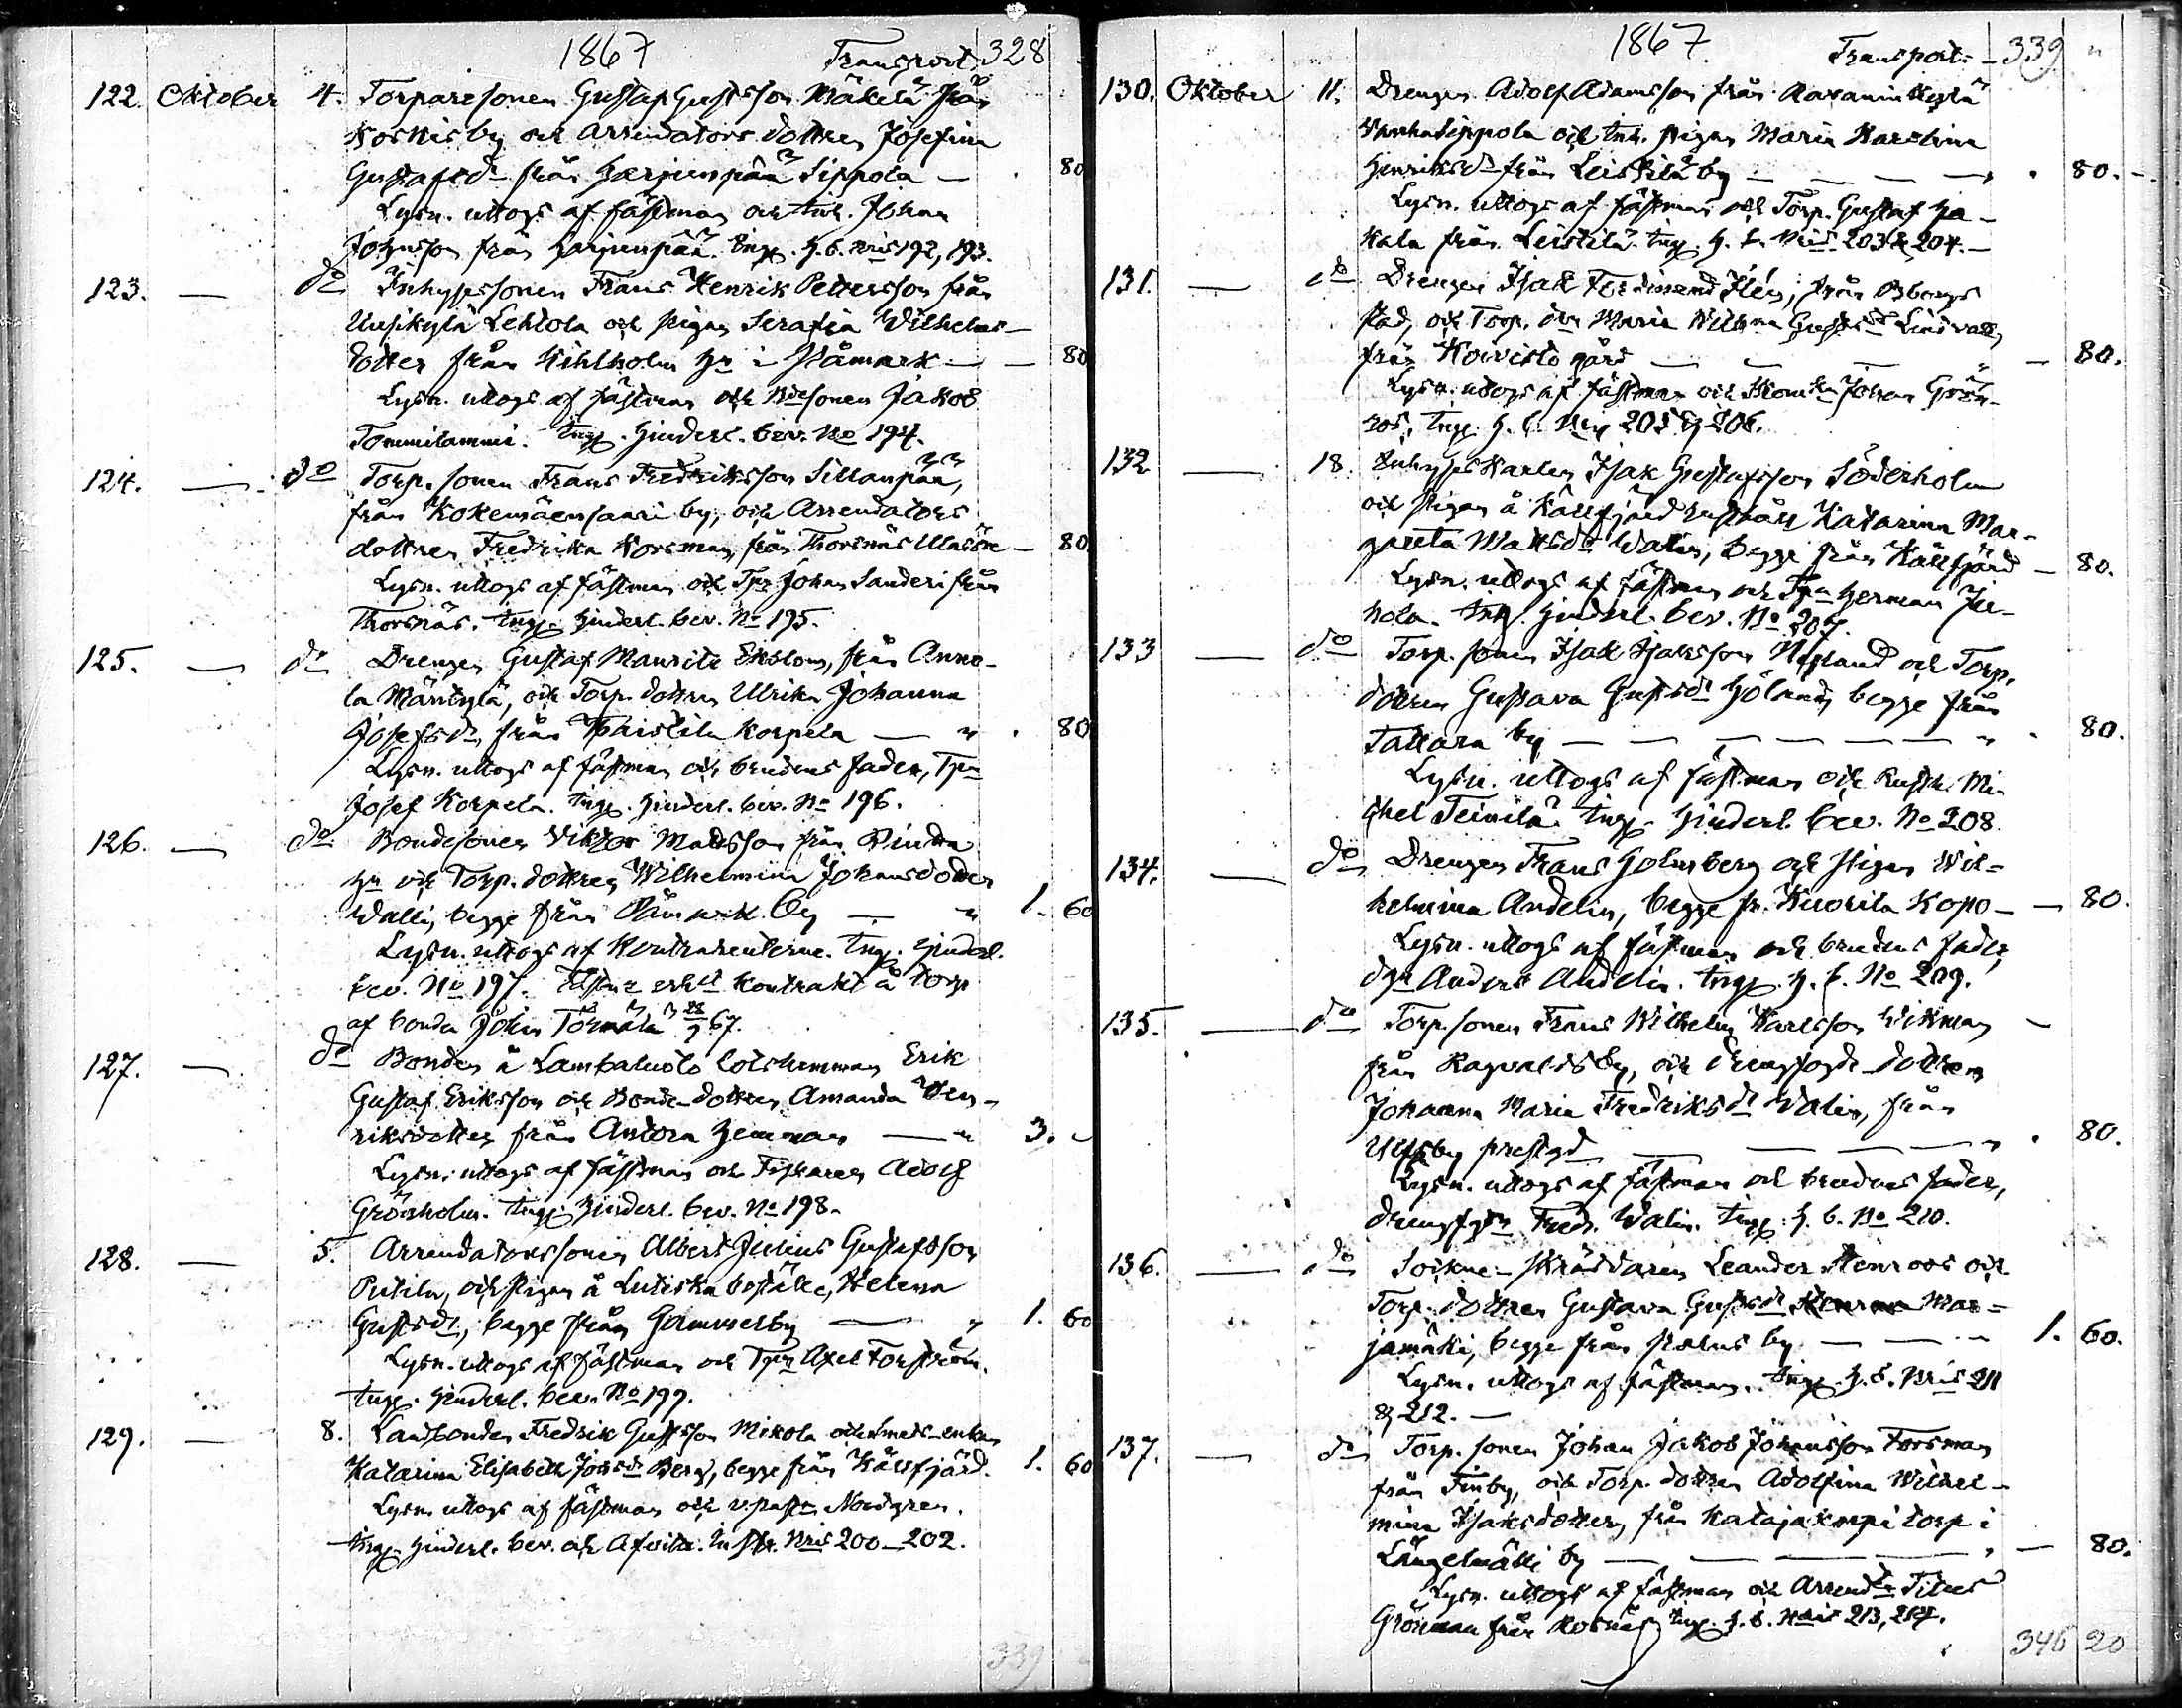 1867 Transport 328
122. Oktober 4. Torparesonen Gustaf Gustsson Mäkelä från
Koskis by och Arrendators dottren Josefina
Gustafsdr från Harjunpää Sippola — 80
Lysn. uttogs af fästman och Inh. Johan
Johnsson från Harjunpää. Ingg. H. b. Nris 192, 193.
123. — do Inhysessonen Frans Henrik Pettersson från
Uusikylä Lehtola och pigan Serafia Wilhelms-
dotter från Kihlholm Hn i Påmark — 80
Lysn. uttogs af fästman och Bdesonen Jakob
Tommilammi. Ingg. Hinderl. bev. No 194.
124. — do Torp. sonen Frans Fredriksson Sillanpää,
från Kokemäensaari by, och Arrendators
dottren Fredrika Korsman, från Thorsnäs — 80
Lysn. uttogs af fästman och Tpr Johan Sanderi från
Thorsnäs. Ingg. Hinderl. bev. No 195.
125. — do Drengen Gustaf Maurits Ekblom, från Anno-
la Mäntylä, och Torp. dottren Ulrika Johanna
Josefsdr, från Paistila Korpela — " . 80
Lysn. uttogs af fästman och brudens fader, Tpn
Josef Korpela. Ingg. Hinderl. bev. No 196.
126. — do Bondesonen Viktor Mattsson från
Hn och Torp. dottren Wilhelmina Johansdotter
Walli, begge från Påmark by — " 1. 60
Lysn. uttogs af Kontrahenterne. Ingg. Hinderl.
bev. No 197. kontrakt å torp
af bonden Johan Törmälä 28/9 67.
127. — do Bonden å Lambaluoto Lotshemman Erik
Gustaf Eriksson och Bonde-dottren Amanda Hen-
riksdotter från Antora Hemman — " 3. "
Lysn. uttogs af fästman och Fiskaren Adolf
Grönholm. Ingg. Hinderl. bev. No 198.
128. — 5. Arrendatorssonen Albert Julius Gustafsson
Putila, och pigan å Lutiska boställe, Helena
Gustsdr, begge från Hammarby — " 1. 60
Lysn. uttogs af fästman och Tprn Axel Forström.
Ingg. Hinderl. bev. No 199.
129. — 8. Landbonden Fredrik Gustsson Mikola och smeds-enkan
Katarina Elisabeth Johsdr Berg, begge från Källfjärd. 1. 60
Lysn. uttogs af fästman och Nordgren.
Ingg. Hinderl. bev. och Afvittr. Instr. Nris 200-202.
339
1867. Transport: — 339 "
130. Oktober 11. Drengen Adolf Adamsson från Ravaninkylä
Vanhasippola och Inh. pigan Maria Karolina
Henriksdr från Leistilä by — — — — . 80. —
Lysn. uttogs af fästman och Torp. Gustaf Ha-
kala från Leistilä. Ingg. H. b. Nris 203 & 204. —
131. — do Drengen Isak Ferdinand Flén, från Bborgs
stad, och Torp. dtr Maria Wilhma Gustsdr Lindvall,
från Koivisto gård — — — — 80.
Lysn. uttogs af fästman och Skomkn Johan Grön-
ros, Ingg. H. b. Nris 205 & 206.
132 — 18. Inhyseskarlen Isak Gustafsson Söderholm
och pigan å Källfjärd rusthåll Katarina Mar-
gareta Mattsdr Walin, begge från Källfjärd — 80.
Lysn. uttogs af fästman och Tpn Herman Ju-
hola. Ingg. Hinderl. bev. No 207.
133 — do Torp. sonen Isak Isaksson Nygland och Torp.
dottren Gustava Gustsdr Höland, begge från
Tattara by — — — — — — " . 80.
Lysn. uttogs af fästman och Rusth. Mi-
chel Teinilä. Ingg. Hinderl. bev. No 208.
134. — do Drengen Frans Holmberg och Pigan Wil-
helmina Andelin, begge fr. Kuorila Kopo — — 80.
Lysn. uttogs af fästman och brudens fader,
Anders Andelin. Ingg. H. b. No 209.
135. — do Torp. sonen Frans Wilhelm Karlsson Wikman —
från Ragvaldsby, och drengfogde-dottren
Johanna Maria Fredriksdr Walin, från
Ulfsby prestgd — — — — " . 80.
Lysn. uttogs af fästman och brudens fader,
drengfgdn Fredr. Walin. Ingg. H. b. No 210.
136. — do Sockne-skräddaren Leander Stenroos och
Torp. dottren Gustava Gustsdr Mar-
jamäki, begge från by — — — " 1. 60.
Lysn. uttogs af fästman. Ingg. H. b. Nris 211
& 212. —
137. — do Torp. sonen Johan Jakob Johansson Forsman
från Finby, och Torp. dottren Adolfina Wilhel-
mina Isaksdotter, från Katajakorpi torp i
Längelmäki by — — — — " — 80.
Lysn. uttogs af fästman och Arrendn Titus
Grönman från Kosnäs, Ingg. H. b. Nris 213, 214.
346 20